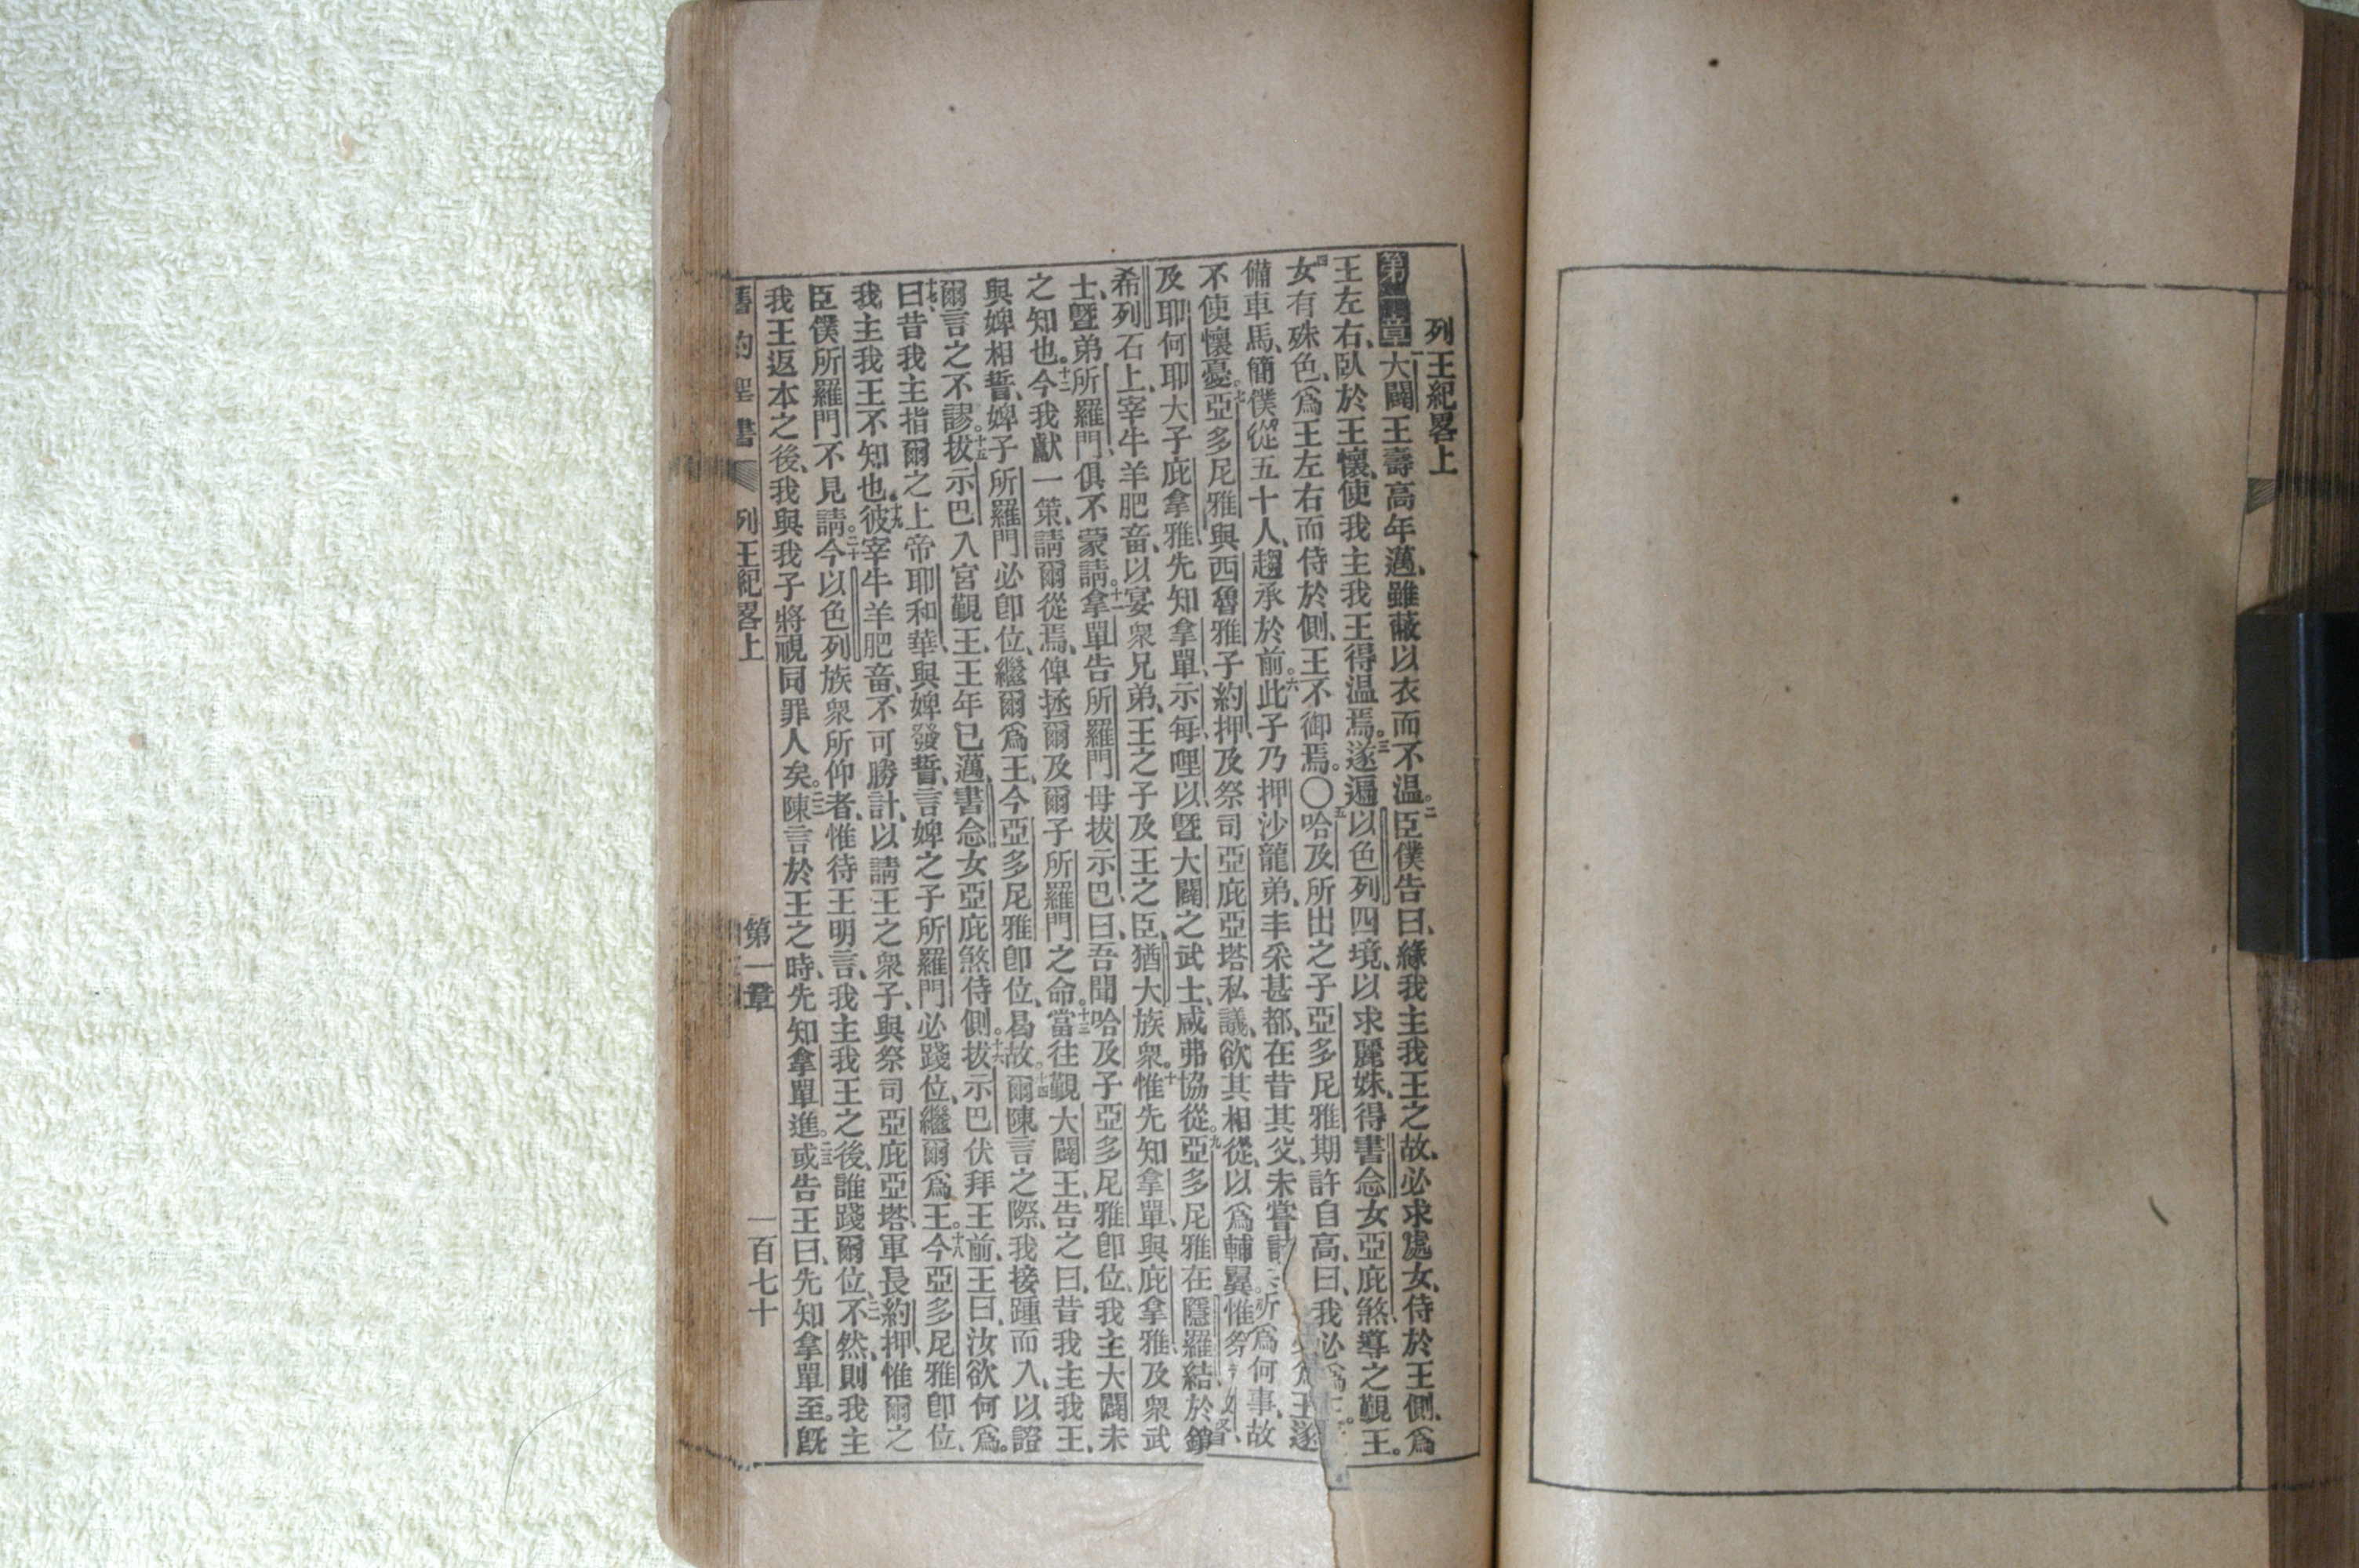 列王紀畧上
第一章 一大闢王壽高年邁、雖蔽以衣而不温。二臣僕告曰、緣我主我王之故、必求處女、侍於王側、爲
王左右、臥於王懷、使我主我王得温焉。三遂遍以色列四境、以求麗姝、得書念女亞庇煞、導之覲王。
四女有殊色、爲王左右而侍於側、王不御焉。〇五哈及所出之子亞多尼雅期許自高、曰、我必爲王遂
備車馬、簡僕從五十人、趨承於前。六此子乃押沙龍弟、丰采甚都、在昔其父、未嘗所爲何事、故
不使懷憂。七亞多尼雅與西魯雅子約押、及祭司亞庇亞塔私議、欲其相從、以爲輔翼。惟
及耶何耶大子庇拿雅、先知拿單、示每、哩以、暨大闢之武士、咸弗協從。九亞多尼雅在隱羅結於鎖
希列石上、宰牛羊肥畜、以宴衆兄弟、王之子及王之臣、猶大族衆。十惟先知拿單、與庇拿雅、及衆武
士、暨弟所羅門、俱不蒙請。十一拿單告所羅門母拔示巴曰、吾聞哈及子亞多尼雅卽位、我主大闢未
之知也。十二今我獻一策、請爾從焉、俾拯爾及爾子所羅門之命。十三當往覲大闢王、告之曰、昔我主我王、
與婢相誓、婢子所羅門必卽位、繼爾爲王、今亞多尼雅卽位、曷故。十四爾陳言之際、我接踵而入、以證
爾言之不謬。十五拔示巴入宮覲王、王年已邁、書念女亞庇煞侍側。十六拔示巴伏拜王前、王曰、汝欲何爲。
十七曰、昔我主指爾之上帝耶和華、與婢發誓、言婢之子所羅門必踐位、繼爾爲王。十八今亞多尼雅卽位、
我主我王不知也。十九彼宰牛羊肥畜、不可勝計、以請王之衆子、與祭司亞庇亞塔、軍長約押、惟爾之
臣僕所羅門不見請。二十今以色列族衆所仰者、惟待王明言、我主我王之後、誰踐爾位、不然、則我主
我王返本之後、我與我子將視同罪人矣。陳言於王之時、先知拿單進。或告王曰、先知拿單至。旣
舊約聖書 列王紀畧上 第一章 一百七十